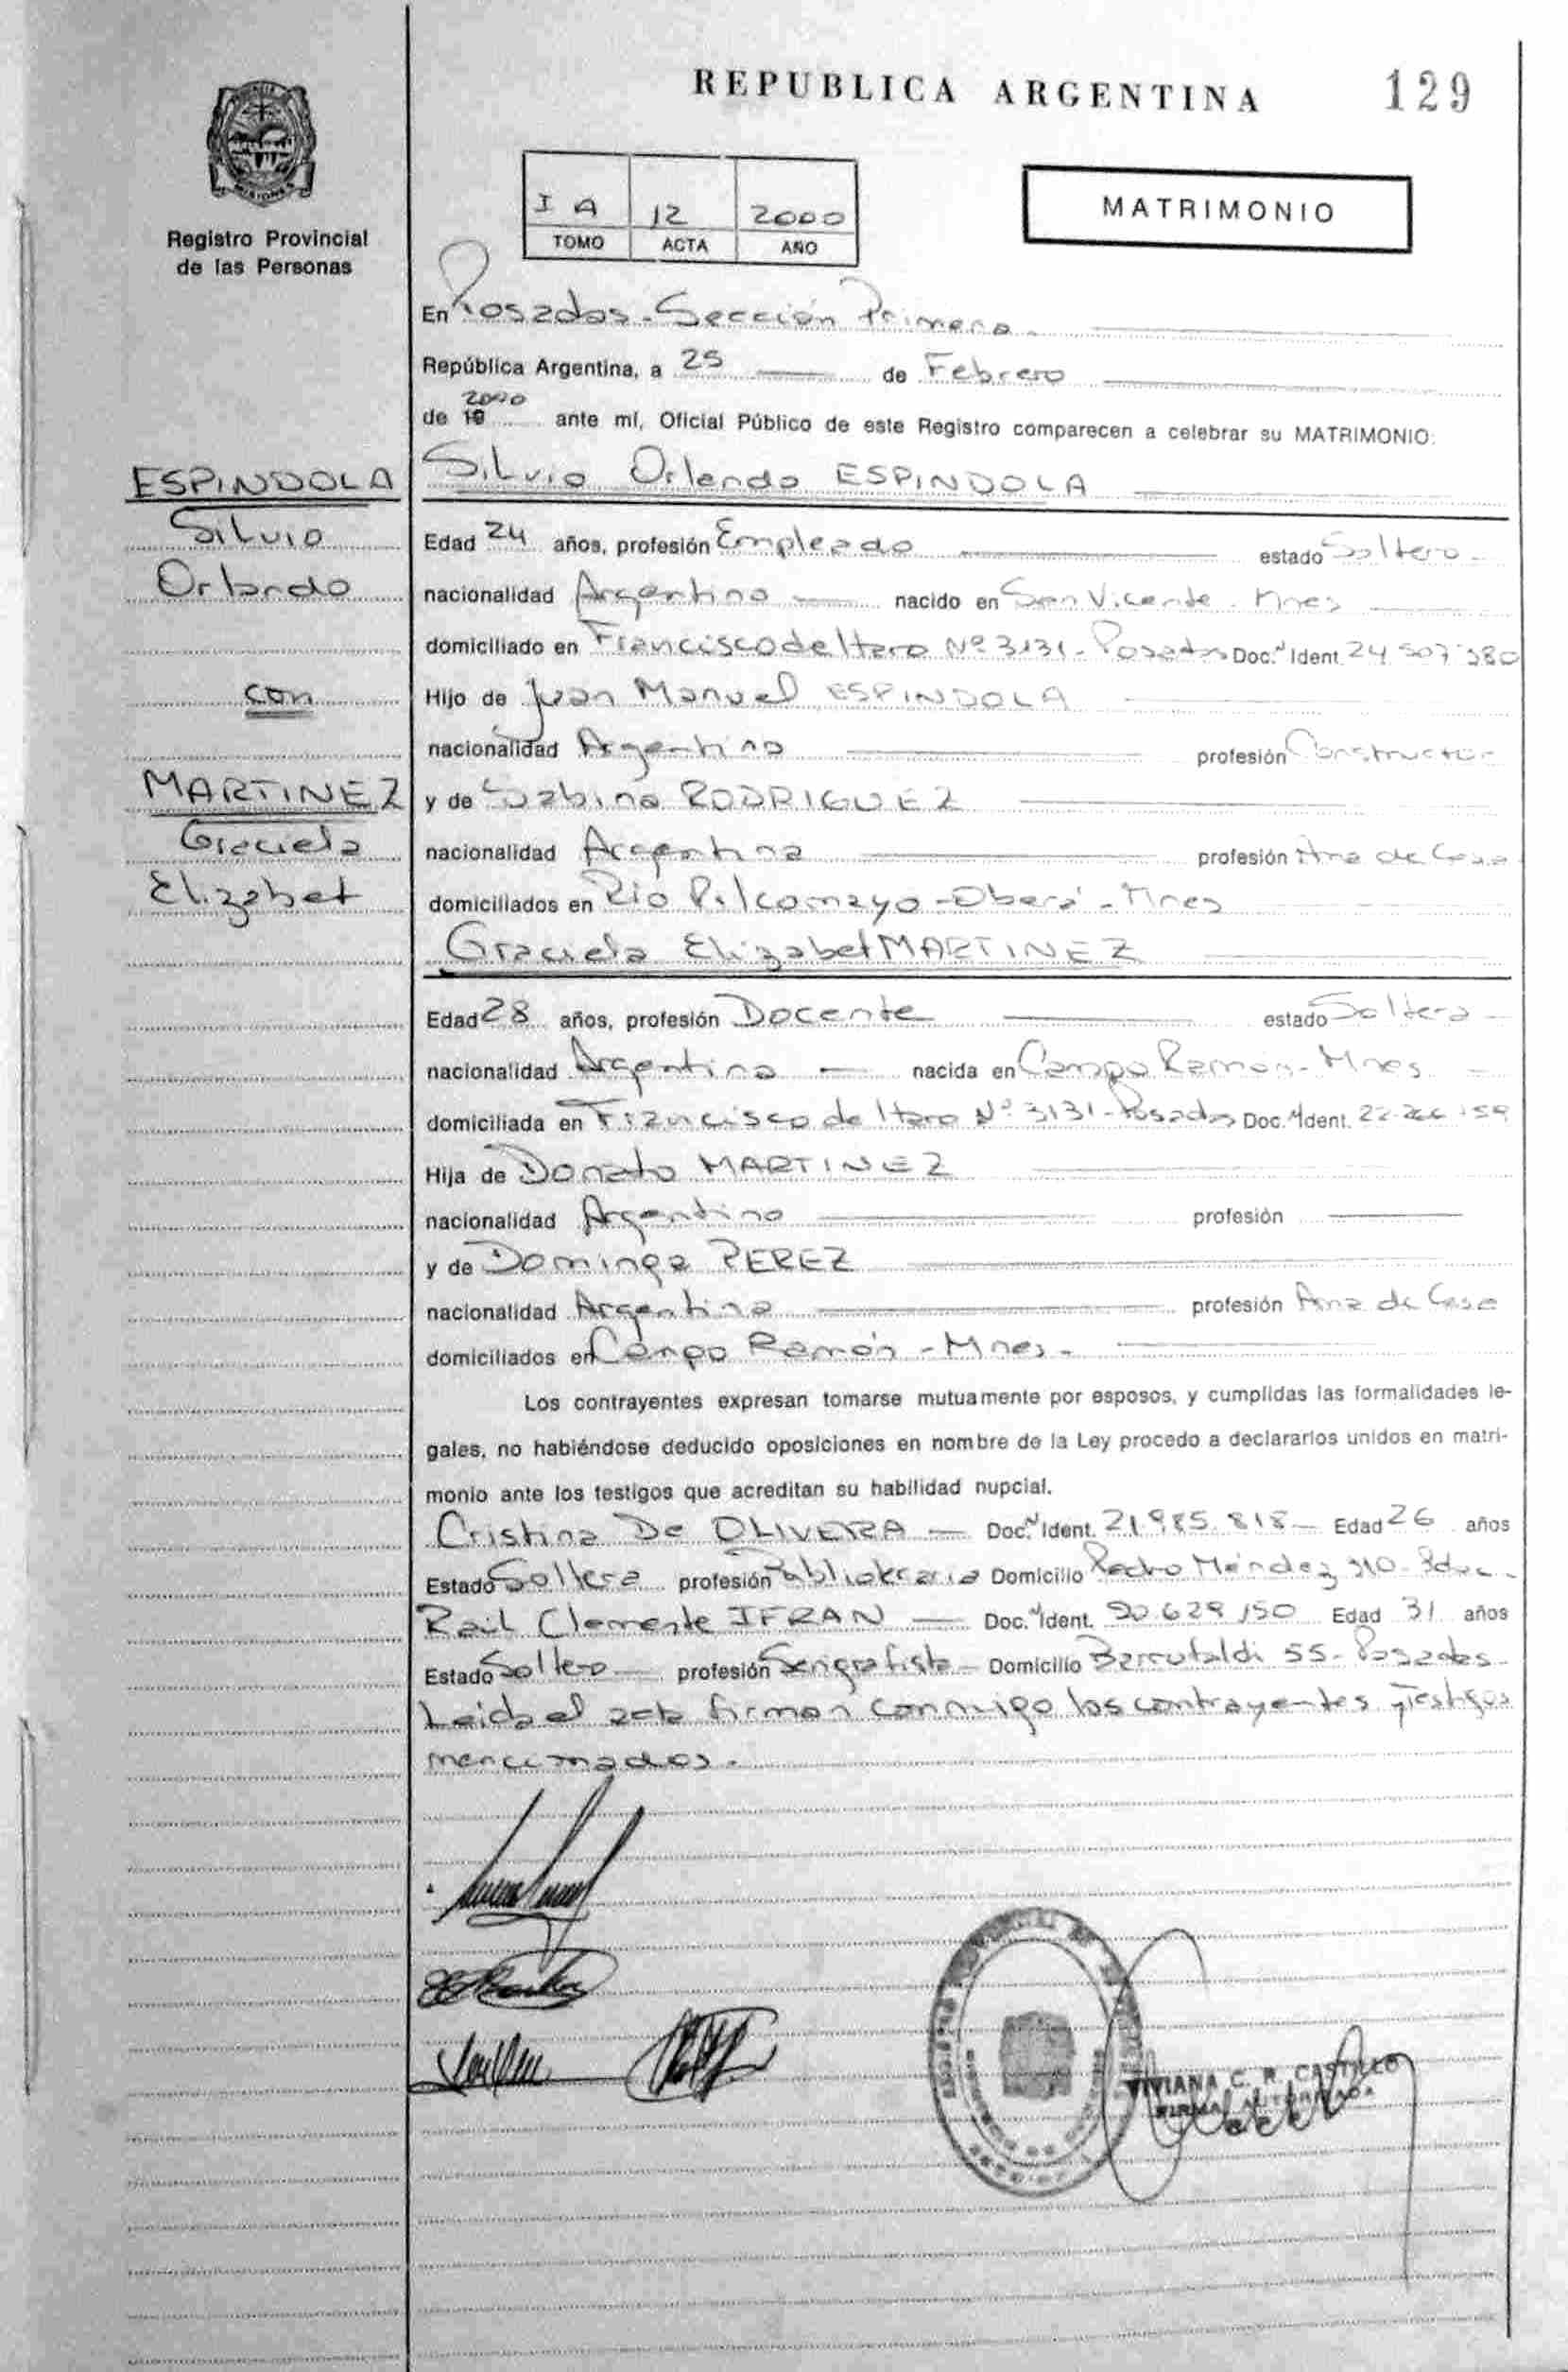 REPUBLICA ARGENTINA 129
Registro Provincial
de las Personas
I A 12 2000
TOMO ACTA AÑO
MATRIMONIO
En Posadas - Sección Primera
República Argentina, a 25 de Febrero
2000
de 19 ante mí, Oficial Público de este Registro comparecen a celebrar su MATRIMONIO:
ESPINDOLA
Silvio
Orlando
con
MARTINEZ
Graciela
Elizabet
Silvio Orlando ESPINDOLA
Edad 24 años, profesión Empleado estado Soltero -
nacionalidad Argentino nacido en San Vicente - Mnes
domiciliado en Francisco de Haro Nº 3131 - Posadas Doc. Ident. 24 507
Hijo de Juan Manuel ESPINDOLA
nacionalidad Argentino profesión Constructor
y de RODRIGUEZ
nacionalidad Argentina profesión Ama de Casa
domiciliados en Río Pilcomayo - Oberá - Mnes
Graciela Elizabet MARTINEZ
Edad 28 años, profesión Docente estado Soltera -
nacionalidad Argentina nacida en Campo Ramón - Mnes
domiciliada en Francisco de Haro Nº 3131 - Posadas Doc. Ident. 22.266.159
Hija de Donato MARTINEZ
nacionalidad Argentino profesión
y de Dominga PEREZ
nacionalidad Argentina profesión Ama de Casa
domiciliados en Campo Ramón - Mnes -
Los contrayentes expresan tomarse mutuamente por esposos, y cumplidas las formalidades le-
gales, no habiéndose deducido oposiciones en nombre de la Ley procedo a declararlos unidos en matri-
monio ante los testigos que acreditan su habilidad nupcial.
Cristina De OLIVERA - Doc. Ident. 21.985.818 - Edad 26 años
Estado Soltera profesión Bibliotecaria Domicilio Pedro Méndez
Raúl Clemente IFRAN - Doc. Ident. 90.629.150 Edad 31 años
Estado Soltero profesión Serigrafista - Domicilio 55 - Posadas -
Leida el acta firman conmigo los contrayentes y testigos
mencionados -
VIVIANA C. R. CASTILLO
FIRMA AUTORIZADA